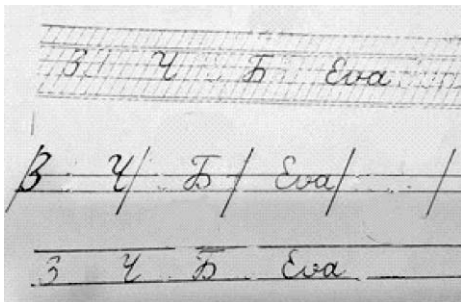 В Ч Б Ева
В Ч Б Ева
З Ч Б Ева